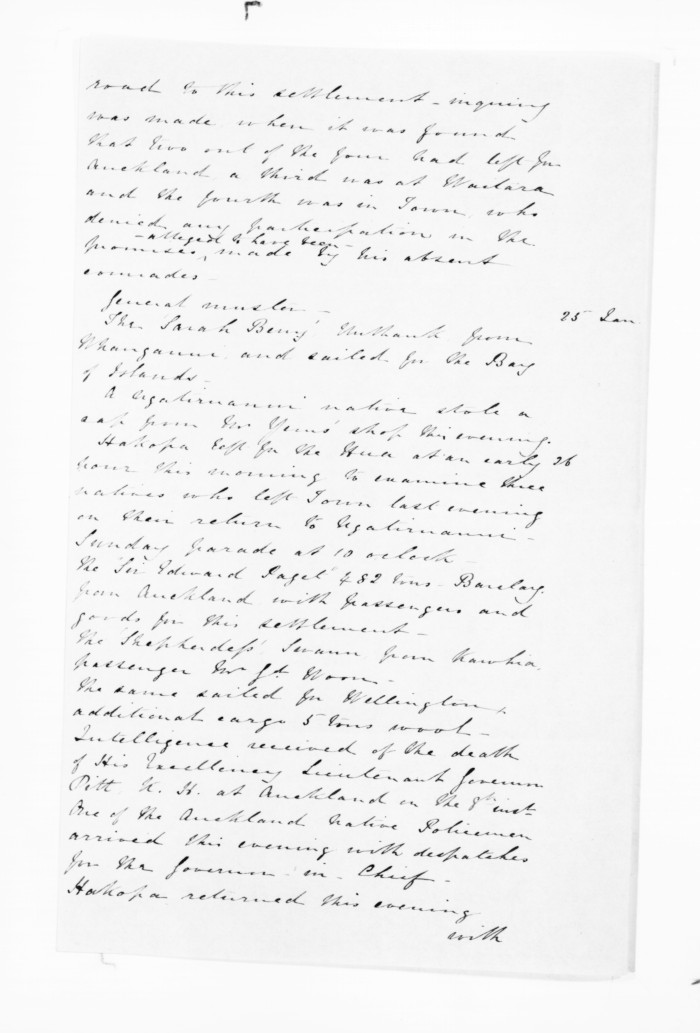 road to this settlement - inquiry
was made when it was found
that two out of the four had left for
Auckland a third was at Waitara
and the fourth was in Town, who
denied any participation in the
- alleged to have been -
promises, made by his absent
comrades -
General muster -
25 Jan
The 'Sarah Berry' Unthank from
Whanganui and sailed for the Bay
of Islands -
A Ngatiruanui native stole a
cap from Mr shop this evening.
Hakopa left for the Hua at an early 26
hour this morning to examine three
natives who left Town last evening
on their return to Ngatiruanui -
Sunday parade at 10 oclock -
The 'Sir Edward Paget' 482 tons - Barclay.
from Auckland with passengers and
goods for this settlement -
The 'Shepherdess' Swann from Kawhia.
passenger Mr Gd. Woon -
The same sailed for Wellington,
additional cargo 5 tons wool -
Intelligence received of the death
of His Excellency Lieutenant Governor
Pitt K. H. at Auckland on the 8th inst -
One of the Auckland Native Policemen
arrived this evening with despatches
for the Governor - in - Chief -
Hakopa returned this evening
with